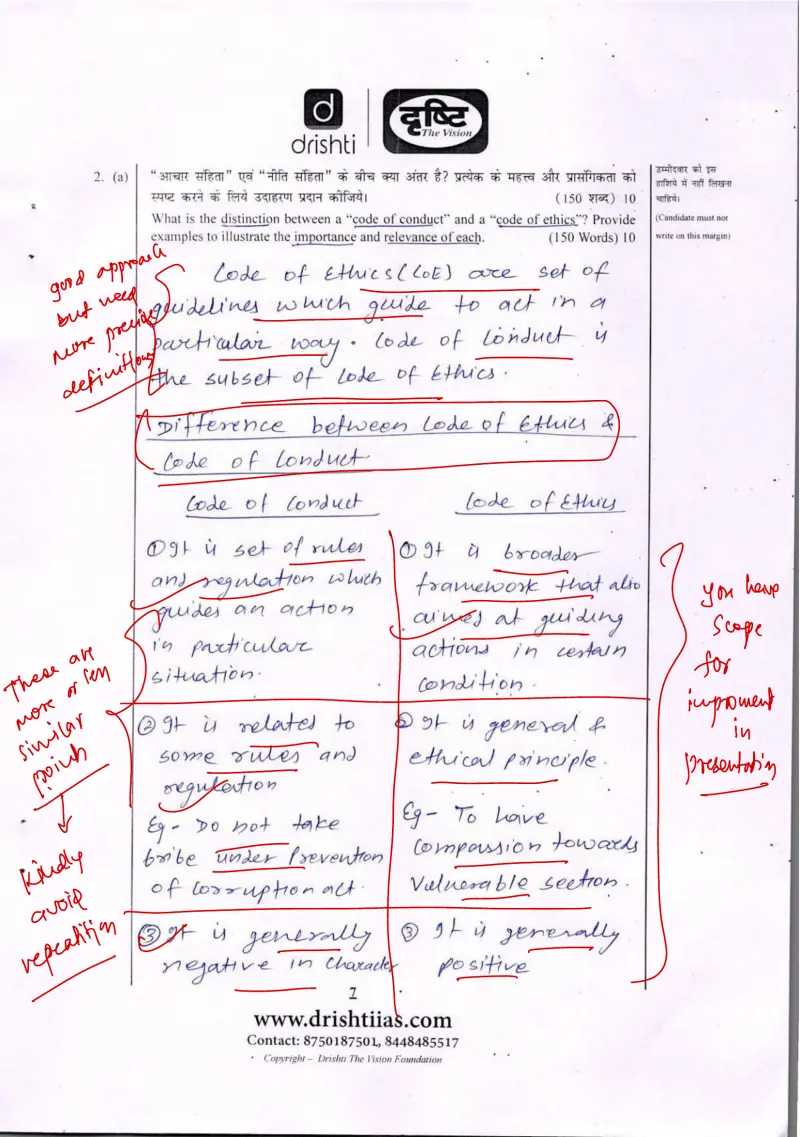 d
drishti
दृष्टि
The Vision
2. (a) "आचार संहिता" एवं "नीति संहिता" के बीच क्या अंतर है? प्रत्येक के महत्त्व और प्रासंगिकता को
स्पष्ट करने के लिये उदाहरण प्रदान कीजिये। (150 शब्द) 10
What is the distinction between a "code of conduct" and a "code of ethics"? Provide
examples to illustrate the importance and relevance of each. (150 Words) 10
उम्मीदवार को इस
हाशिये में नहीं लिखना
चाहिये।
(Candidate must not
write on this margin)
good approach
but need
more precise
definitions
Code of Ethics (CoE) are set of
guidelines which guide to act in a
particular way. Code of Conduct is
the subset of Code of Ethics.
Difference between Code of Ethics &
Code of Conduct
Code of Conduct
① It is set of rules
and regulation which
guides an action
in particular
situation.
② It is related to
some rules and
regulation
Eg - Do not take
bribe under Prevention
of Corruption act.
③ It is generally
negative in Character
Code of Ethics
① It is broader
framework that also
aimes at guiding
actions in certain
condition.
② It is general &
ethical principle.
Eg - To have
Compassion towards
Vulnerable section.
③ It is generally
positive
These are
more or less
similar
points
kindly
avoid
repeatition
you have
scope
for
improment
in
presentation
7
www.drishtiias.com
Contact: 8750187501, 8448485517
Copyright – Drishti The Vision Foundation